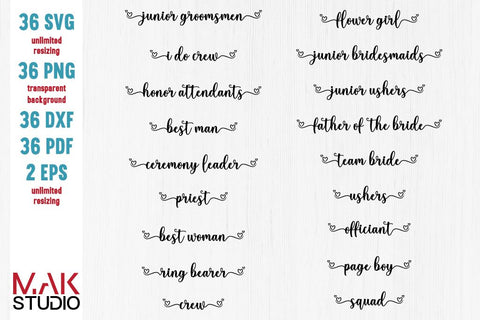 36 SVG
unlimited
resizing
36 PNG
transparent
background
36 DXF
36 PDF
2 EPS
unlimited
resizing
MAK
STUDIO
junior groomsmen
i do crew
honor attendants
best man
ceremony leader
priest
best woman
ring bearer
crew
flower girl
junior bridesmaids
junior ushers
father of the bride
team bride
ushers
officiant
page boy
squad